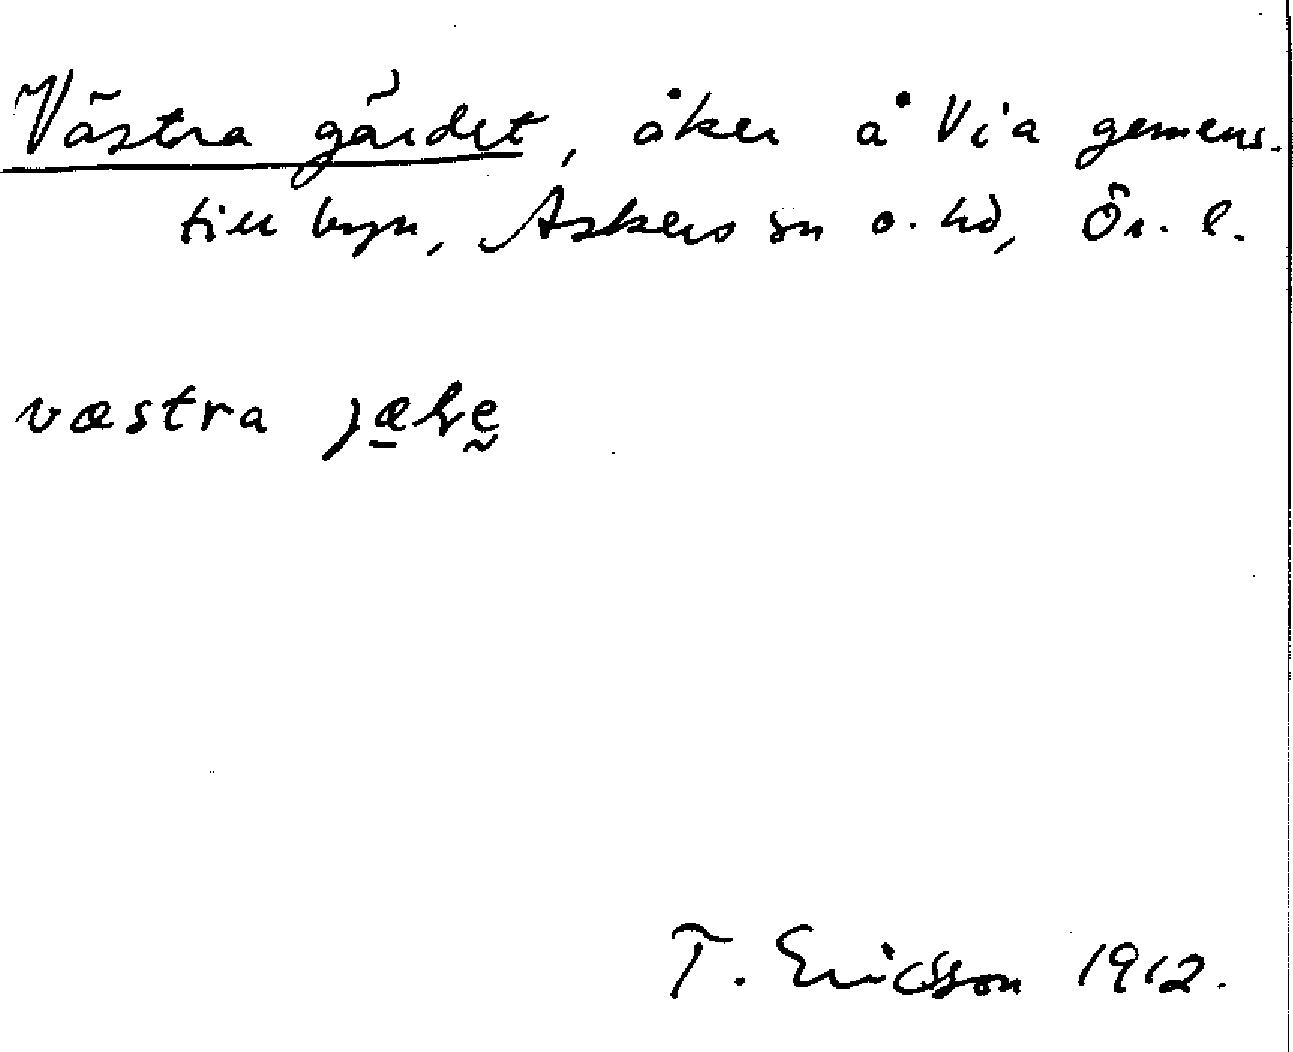 Västra gärdet, åker å Via gemens.
till byn, Askers sn o. hd, Ör. l.
væstra
T. Ericsson 1912.